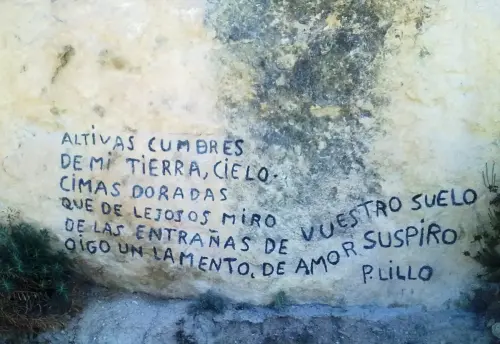 ALTIVAS CUMBRES
DE MI TIERRA, CIELO.
CIMAS DORADAS
QUE DE LEJOSOS MIRO
DE LAS ENTRAÑAS DE VUESTRO SUELO
OIGO UN LAMENTO, DE AMOR SUSPIRO
P. LILLO